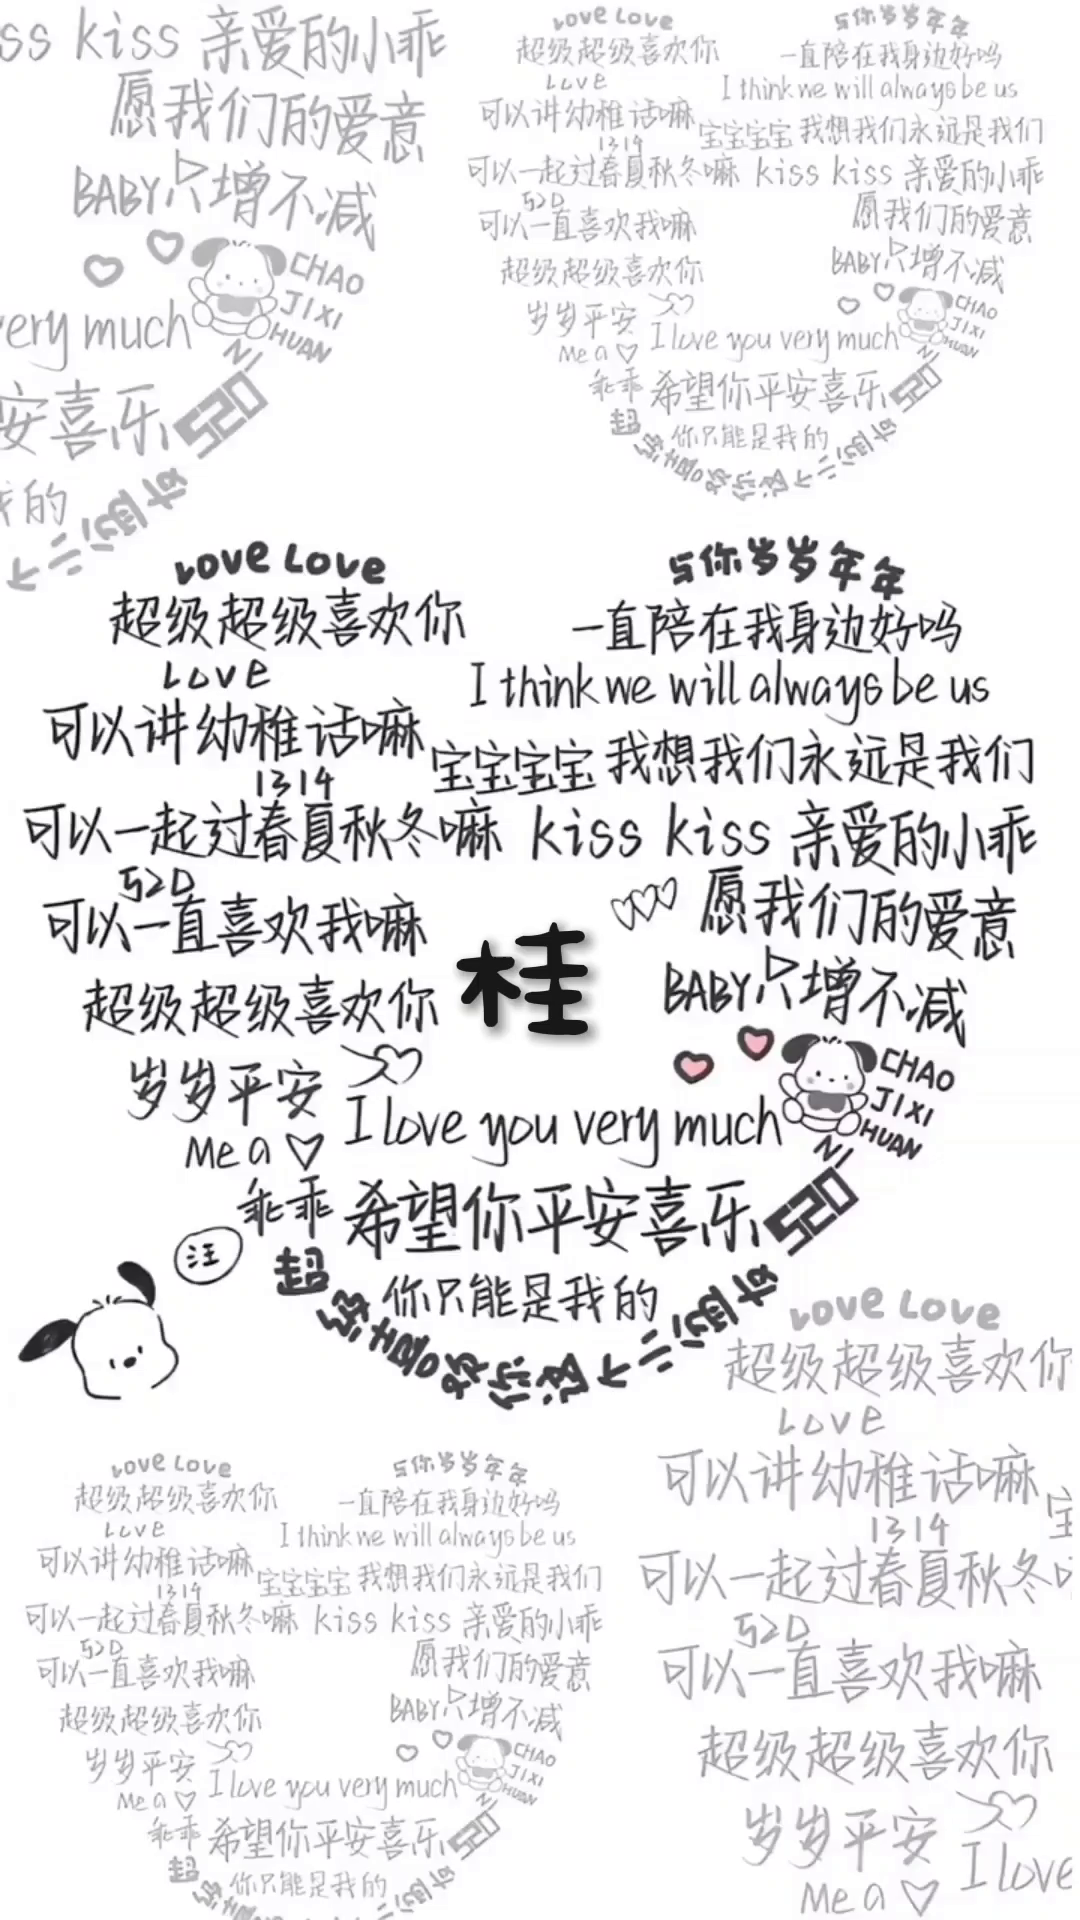 ss kiss 亲爱的小乖
愿我们的爱意
BABY只增不减
CHAO
JIXI
HUAN
NI
very much
安喜乐
520
我的
个二洞可
Love Love
超级超级喜欢你
Love
可以讲幼稚话嘛
1314
可以一起过春夏秋冬嘛
520
可以一直喜欢我嘛
超级超级喜欢你
岁岁平安
Me a
乖乖
与你岁岁年年
一直陪在我身边好吗
I think we will always be us
宝宝宝宝 我想我们永远是我们
kiss kiss 亲爱的小乖
愿我们的爱意
BABY只增不减
CHAO
JIXI
HUAN
NI
I love you very much
希望你平安喜乐
520
你只能是我的
Love Love
超级超级喜欢你
Love
可以讲幼稚话嘛
1314
可以一起过春夏秋冬嘛
520
可以一直喜欢我嘛
超级超级喜欢你
岁岁平安
Me a
乖乖
与你岁岁年年
一直陪在我身边好吗
I think we will always be us
宝宝宝宝 我想我们永远是我们
kiss kiss 亲爱的小乖
愿我们的爱意
BABY只增不减
桂
CHAO
JIXI
HUAN
NI
I love you very much
希望你平安喜乐
520
你只能是我的
汪
Love Love
超级超级喜欢你
Love
可以讲幼稚话嘛
1314
可以一起过春夏秋冬嘛
520
可以一直喜欢我嘛
超级超级喜欢你
岁岁平安
Me a
乖乖
与你岁岁年年
一直陪在我身边好吗
I think we will always be us
宝宝宝宝 我想我们永远是我们
kiss kiss 亲爱的小乖
愿我们的爱意
BABY只增不减
CHAO
JIXI
HUAN
NI
I love you very much
希望你平安喜乐
520
你只能是我的
Love Love
超级超级喜欢你
Love
可以讲幼稚话嘛
宝
1314
可以一起过春夏秋冬
520
可以一直喜欢我嘛
超级超级喜欢你
岁岁平安
I love
Me a